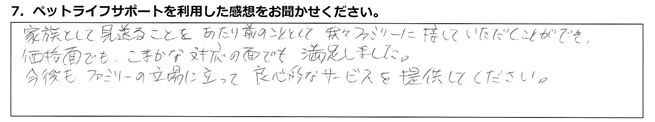 7. ペットライフサポートを利用した感想をお聞かせください。
家族として見送ることを あたり前のこととして 我々ファミリーに 接していただくことができ、
価格面でも、こまかな対応の面でも 満足しました。
今後も ファミリーの立場に立って 良心的なサービスを 提供してください。